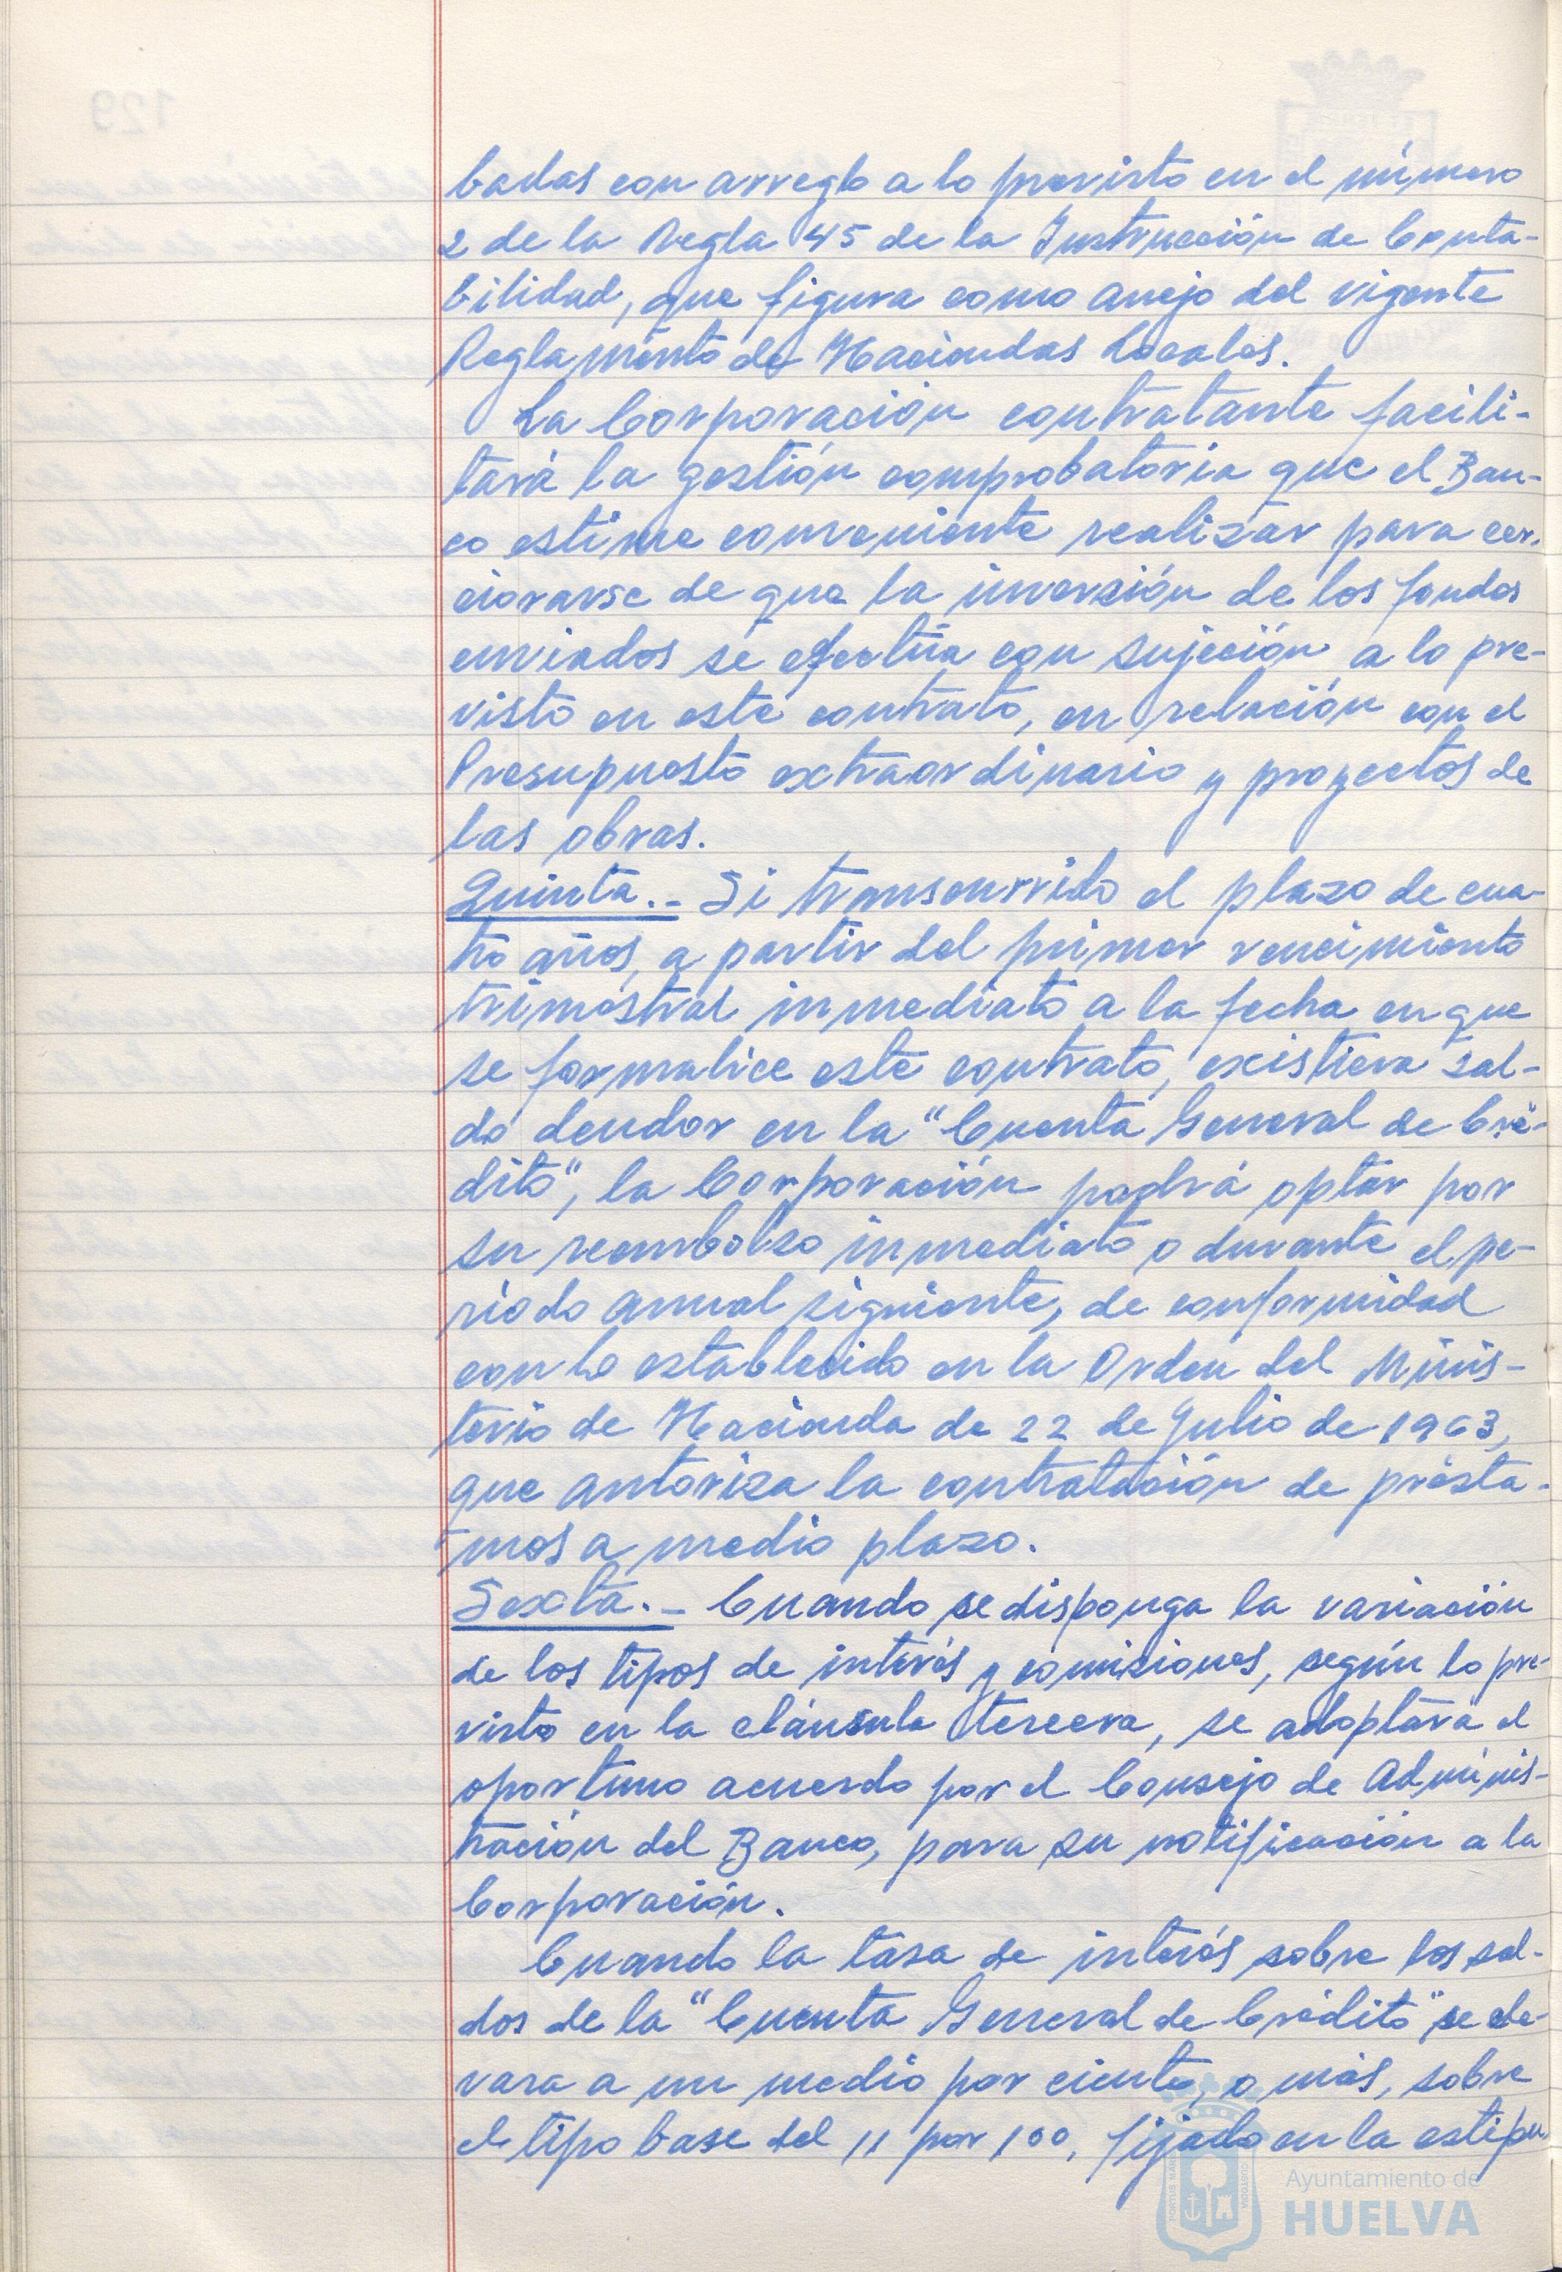 badas con arreglo a lo previsto en el número
2 de la Regla 45 de la Instrucción de Conta-
bilidad, que figura como anejo del vigente
Reglamento de Haciendas Locales.
La Corporación contratante facili-
tará la gestión comprobatoria que el Ban-
co estime conveniente realizar para cer-
ciorarse de que la inversión de los fondos
enviados se efectúa con sujeción a lo pre-
visto en este contrato, en relación con el
Presupuesto extraordinario y proyectos de
las obras.
Quinta.- Si transcurrido el plazo de cua-
tro años, a partir del primer vencimiento
trimestral inmediato a la fecha en que
se formalice este contrato, existiera sal-
do deudor en la "Cuenta General de Cré-
dito", la Corporación podrá optar por
su reembolso inmediato o durante el pe-
riodo anual siguiente, de conformidad
con lo establecido en la Orden del Minis-
terio de Hacienda de 22 de Julio de 1963,
que autoriza la contratación de présta-
mos a medio plazo.
Sexta.- Cuando se disponga la variación
de los tipos de interés y comisiones, según lo pre-
visto en la cláusula tercera, se adoptará el
oportuno acuerdo por el Consejo de Adminis-
tración del Banco, para su notificación a la
Corporación.
Cuando la tasa de interés sobre los sal-
dos de la "Cuenta General de Crédito" se ele-
vara a un medio por ciento, o más, sobre
el tipo base del 11 por 100, fijado en la estipu-
Ayuntamiento de
HUELVA